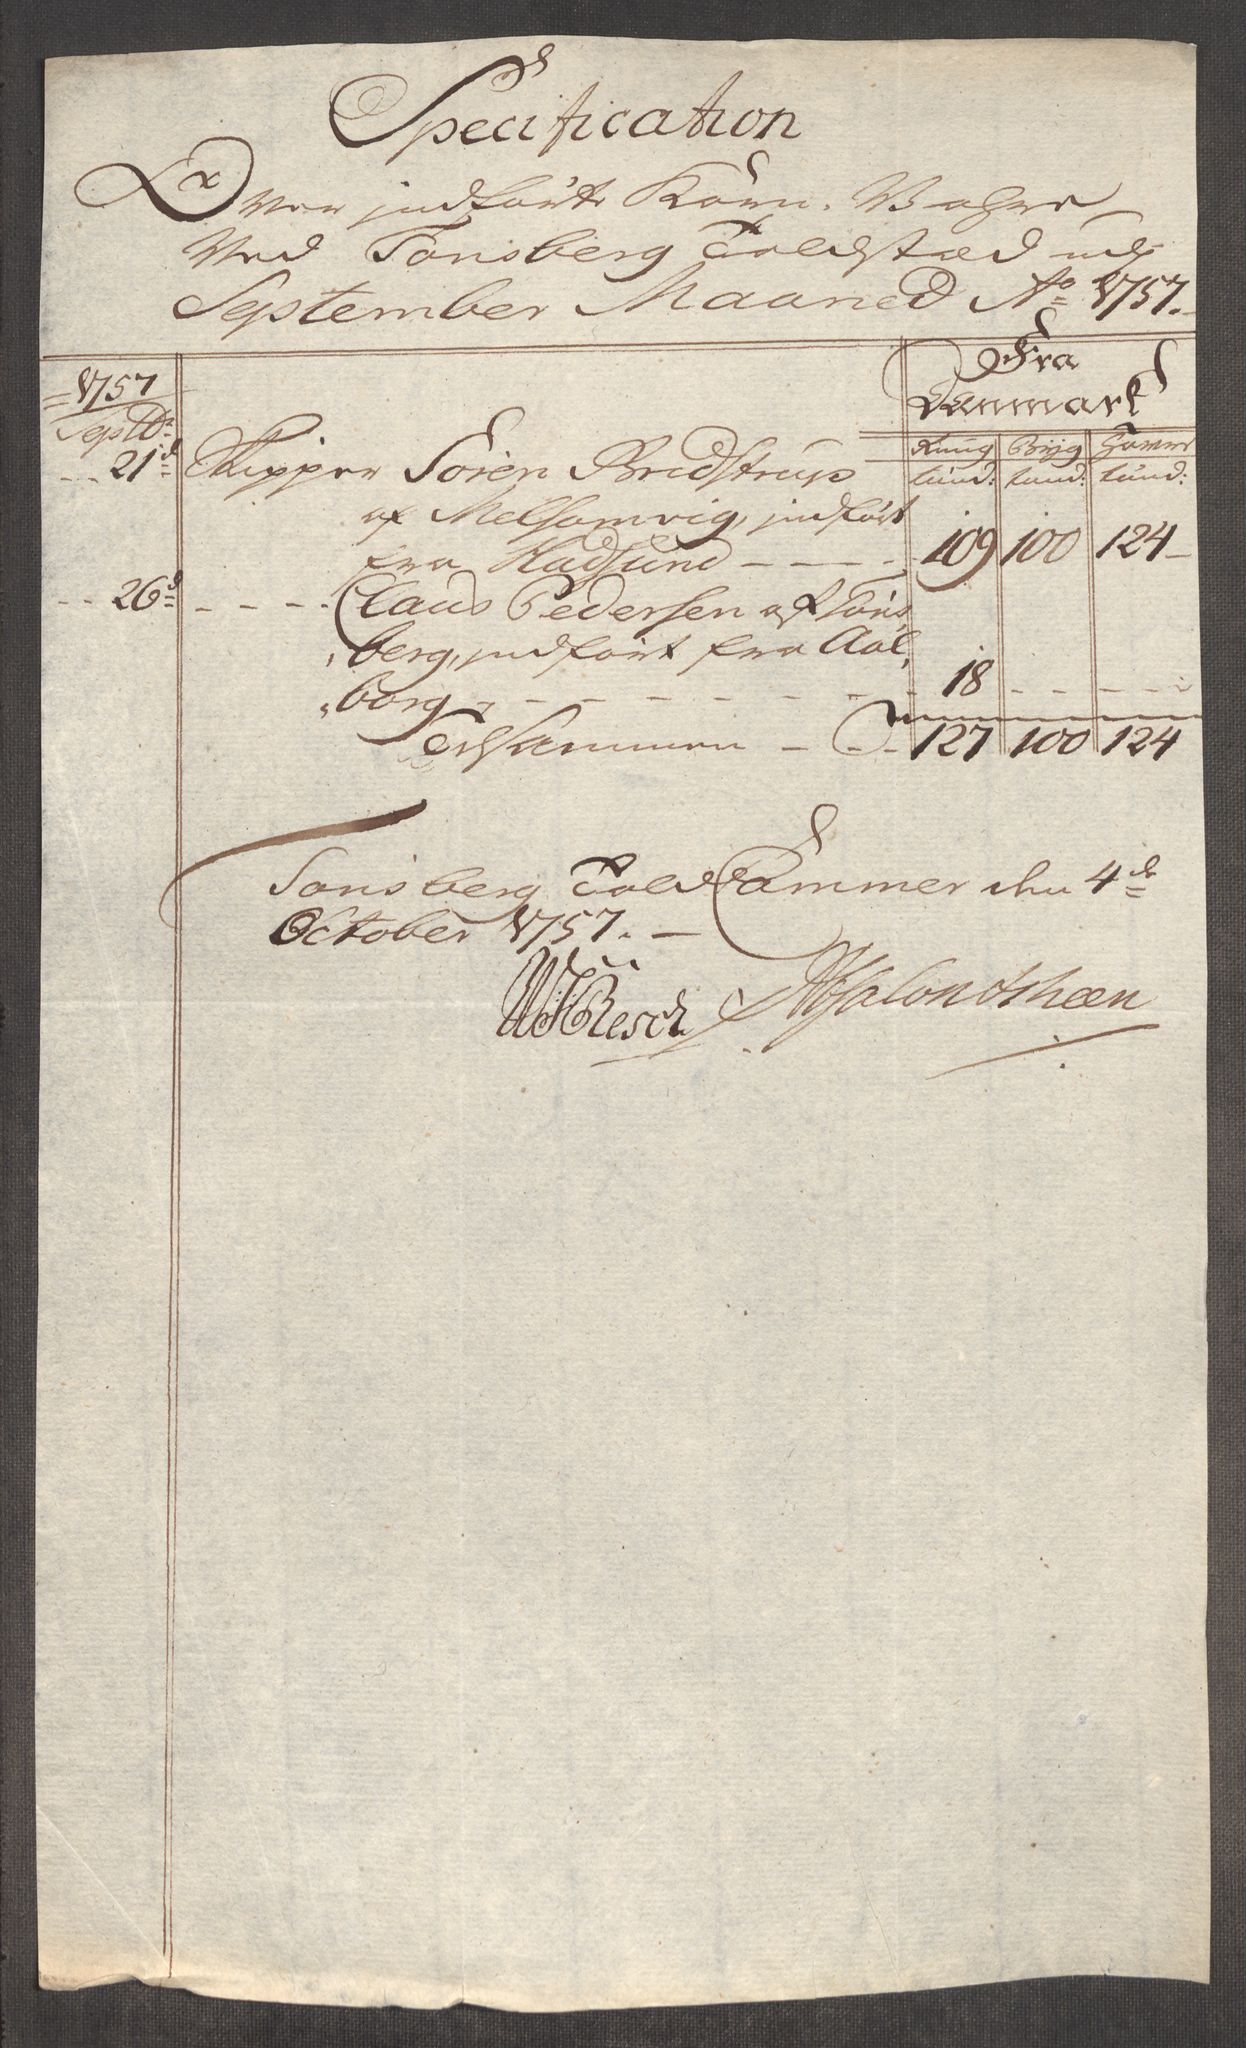 Specification
Over indförte Korn-Vahre
Ved Tonsberg Toldsted udj
September Maaned Ao 1757.
1757
Septbr
Fra
Danmark
Rung tünd: Byg tünd: Hawre tünd:
21d Skipper Sören Bredstrup
af Melsomvig, indfört
fra Hadsund - - - - 109 100 124
26d - - - - Claus Pedersen af Töns
berg, indfört fra Aal,
borg - - - - - - - - - 18 - - - - - -
Tilsammen - - - 127 100 124
Tonsberg Told Cammer den 4de
October 1757. -
Resch